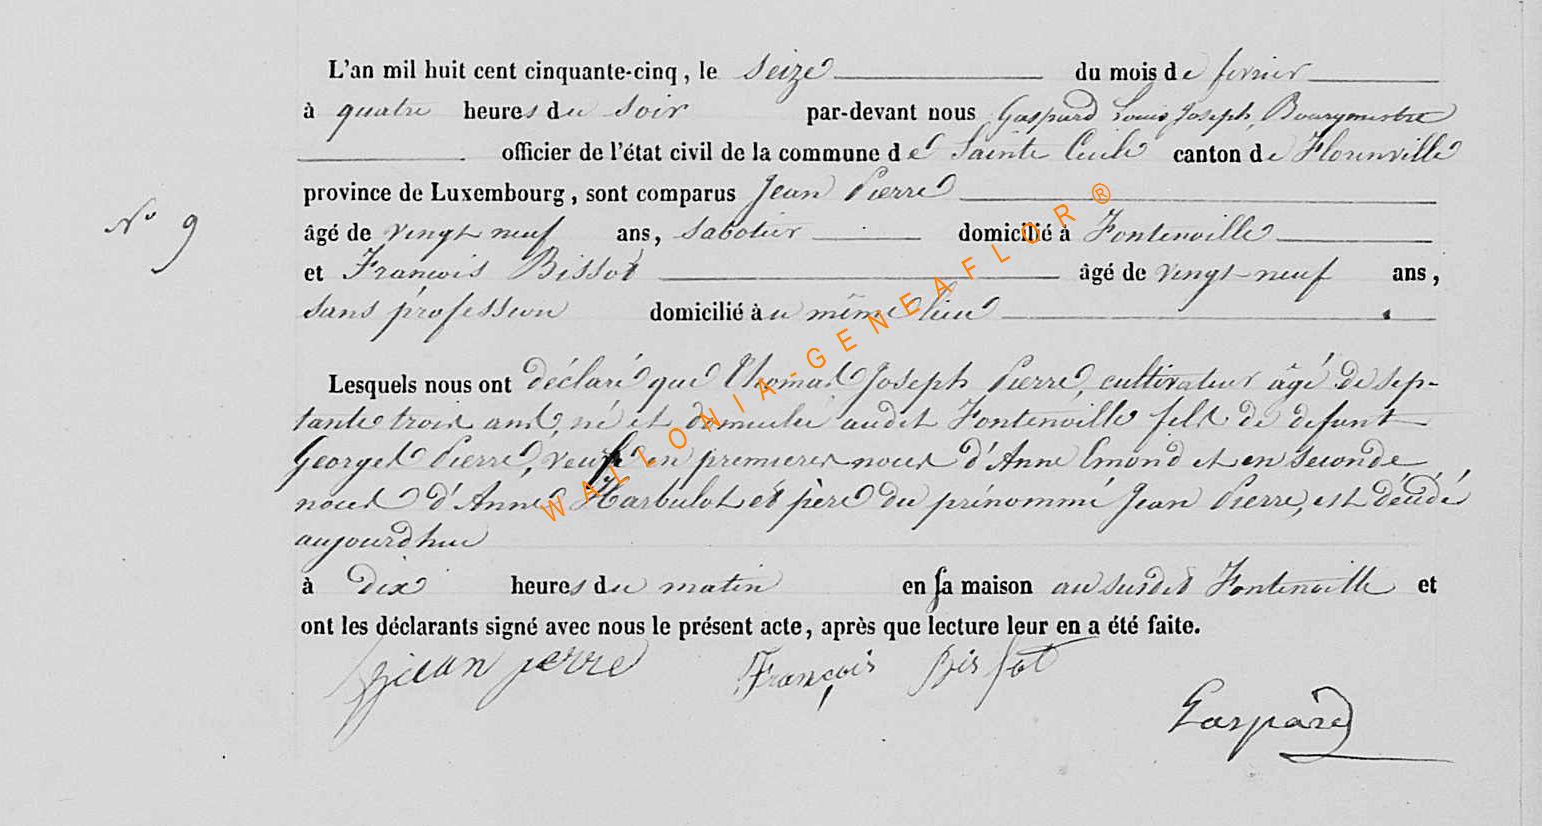 L'an mil huit cent cinquante-cinq, le seize du mois de fevrier
à quatre heures du soir par-devant nous Gaspard Louis Joseph, Bourgmestre
officier de l'état civil de la commune de Sainte Cecile canton de Florenville
province de Luxembourg, sont comparus Jean Pierre
N° 9
âgé de vingt neuf ans, sabotier domicilié à Fontenoille
et Francois Bissot âgé de vingt-neuf ans,
sans profession domicilié au même lieu
Lesquels nous ont déclaré que Thomas Joseph Pierre, cultivateur âgé de sep-
tante trois ans, né et domicilié audit Fontenoille fils de defunt
Georges Pierre, veuf en premieres noces d'Anne Emond et en seconde
noces d'Anne Harbulot et père du prénommé Jean Pierre, est décédé
aujourdhui
à dix heures du matin en sa maison au susdit Fontenoille et
ont les déclarants signé avec nous le présent acte, après que lecture leur en a été faite.
jean pierre François Bissot
Gaspard
WALLONIA-GENEAFLOR®